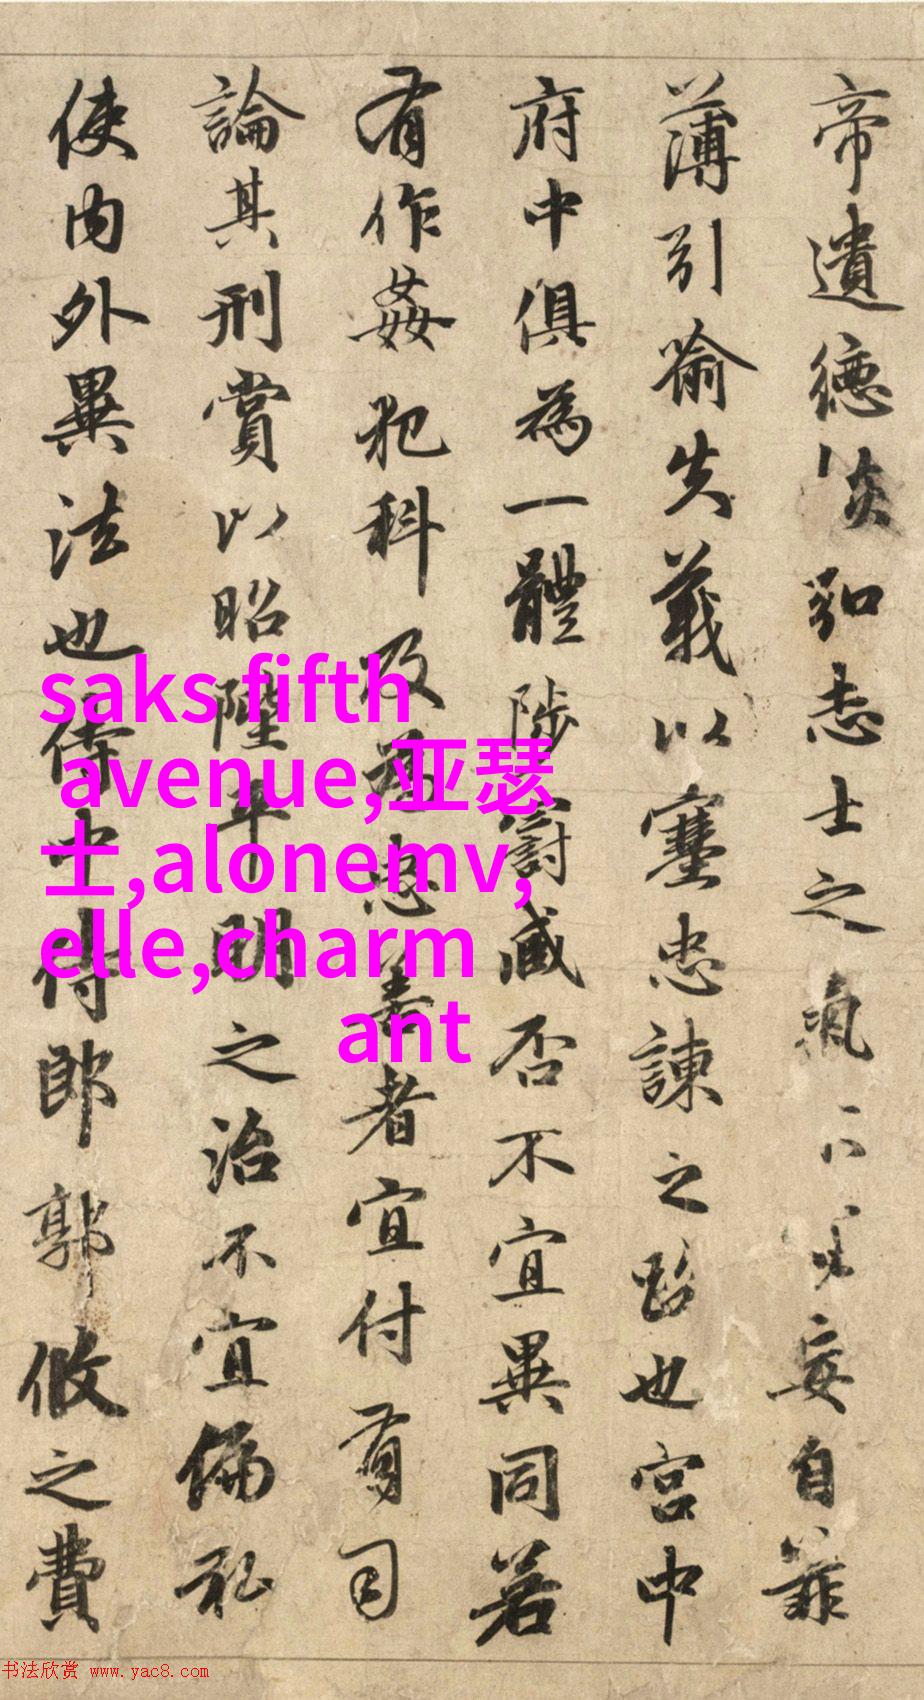 帝遺德恢弘志士之氣妄自菲
薄引喻失義以塞忠諫之路也宮中
府中俱為一體陟罰臧否不宜異同若
有作姦犯科及為忠善者宜付有司
論其刑賞以昭陛平明之治不宜偏私
使内外異法也侍中侍郎郭攸之費
saks fifth
avenue,亚瑟
士,alonemv,
elle,charm
ant
书法欣赏 www.yac8.com